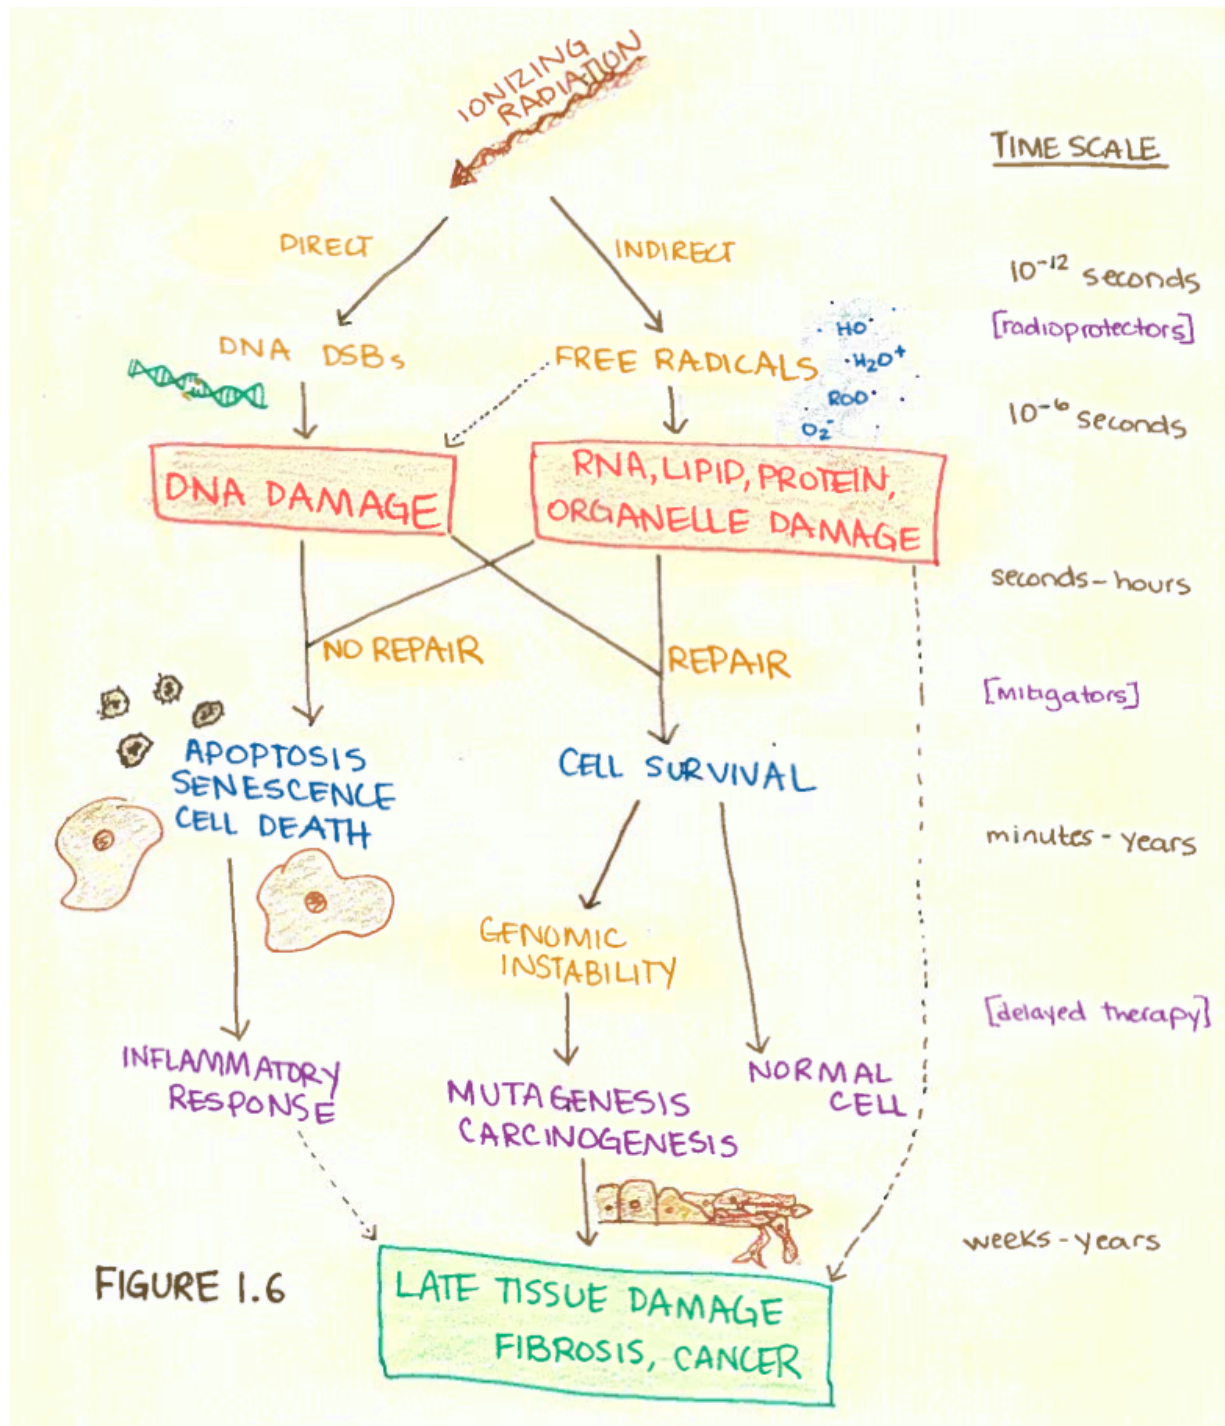 IONIZING
RADIATION
TIME SCALE
DIRECT
INDIRECT
10⁻¹² seconds
[radioprotectors]
DNA DSBs
FREE RADICALS
HO·
·H₂O⁺
ROO·
O₂⁻
10⁻⁶ seconds
DNA DAMAGE
RNA, LIPID, PROTEIN,
ORGANELLE DAMAGE
seconds-hours
NO REPAIR
REPAIR
[mitigators]
APOPTOSIS
SENESCENCE
CELL DEATH
CELL SURVIVAL
minutes-years
GENOMIC
INSTABILITY
[delayed therapy]
INFLAMMATORY
RESPONSE
MUTAGENESIS
CARCINOGENESIS
NORMAL
CELL
weeks-years
FIGURE 1.6
LATE TISSUE DAMAGE
FIBROSIS, CANCER